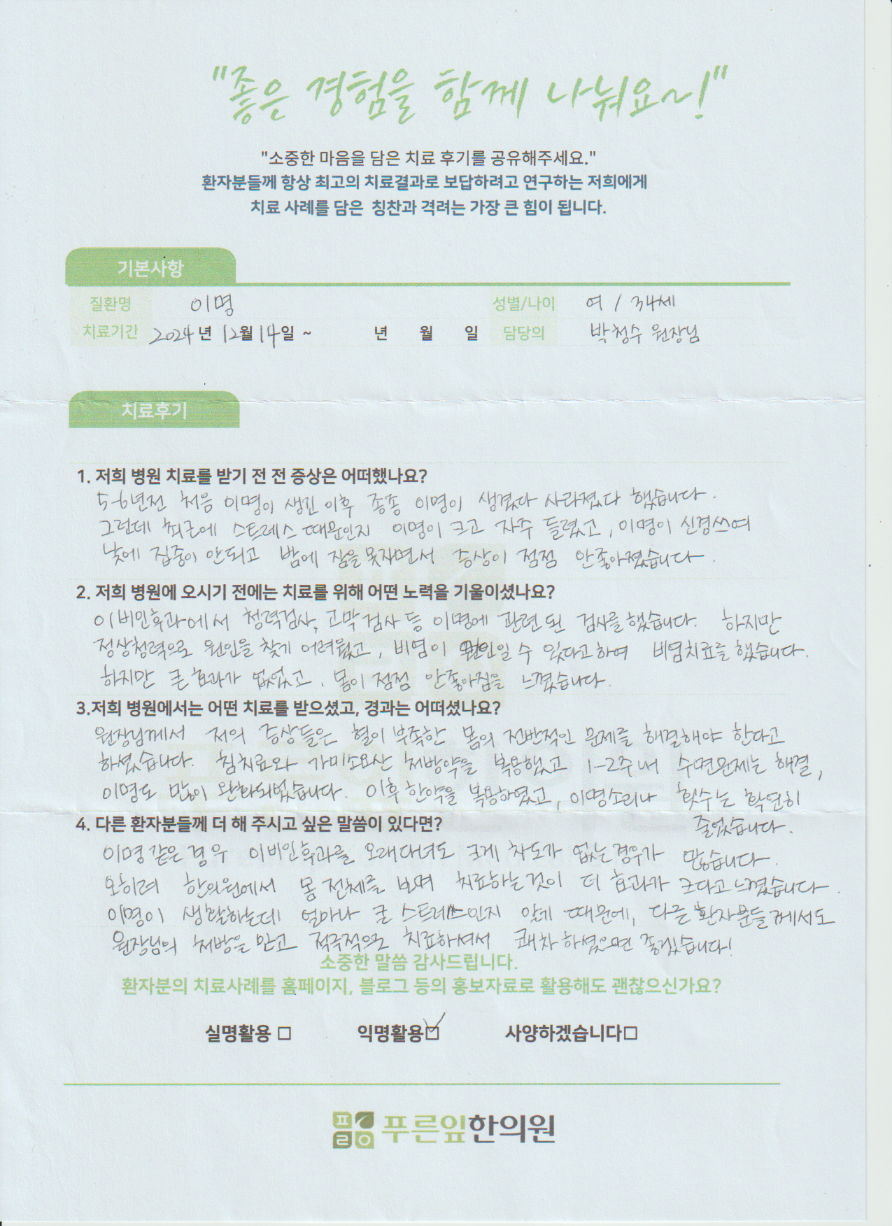 "좋은 경험을 함께 나눠요~!"
"소중한 마음을 담은 치료 후기를 공유해주세요."
환자분들께 항상 최고의 치료결과로 보답하려고 연구하는 저희에게
치료 사례를 담은 칭찬과 격려는 가장 큰 힘이 됩니다.
기본사항
질환명 이명 성별/나이 여 / 34세
치료기간 2024년 12월 14일 ~ 년 월 일 담당의 박청수 원장님
치료후기
1. 저희 병원 치료를 받기 전 전 증상은 어떠했나요?
5-6년전 처음 이명이 생긴 이후 종종 이명이 생겼다 사라졌다 했습니다.
그런데 최근에 스트레스 때문인지 이명이 크고 자주 들렸고, 이명이 신경쓰여
낮에 집중이 안되고 밤에 잠을 못자면서 증상이 점점 안좋아졌습니다.
2. 저희 병원에 오시기 전에는 치료를 위해 어떤 노력을 기울이셨나요?
이비인후과에서 청력검사, 고막검사 등 이명에 관련된 검사를 했습니다. 하지만
정상청력으로 원인을 찾기 어려웠고, 비염이 원인일 수 있다고하여 비염치료를 했습니다.
하지만 큰 효과가 없었고, 몸이 점점 안좋아짐을 느꼈습니다.
3.저희 병원에서는 어떤 치료를 받으셨고, 경과는 어떠셨나요?
원장님께서 저의 증상들은 혈이 부족한 몸의 전반적인 문제를 해결해야 한다고
하셨습니다. 침치료와 가미소요산 처방약을 복용했고 1-2주내 수면문제는 해결,
이명도 많이 완화되었습니다. 이후 한약을 복용하였고, 이명소리나 횟수는 확연히
줄었습니다.
4. 다른 환자분들께 더 해 주시고 싶은 말씀이 있다면?
이명같은 경우 이비인후과를 오래다녀도 크게 차도가 없는경우가 많습니다.
오히려 한의원에서 몸 전체를 보며 치료하는것이 더 효과가 크다고 느꼈습니다.
이명이 생활하는데 얼마나 큰 스트레스인지 알기 때문에, 다른 환자분들께서도
원장님의 처방을 믿고 적극적으로 치료하셔서 쾌차하셨으면 좋겠습니다!
소중한 말씀 감사드립니다.
환자분의 치료사례를 홈페이지, 블로그 등의 홍보자료로 활용해도 괜찮으신가요?
실명활용 □ 익명활용 ☑ 사양하겠습니다 □
푸른잎한의원